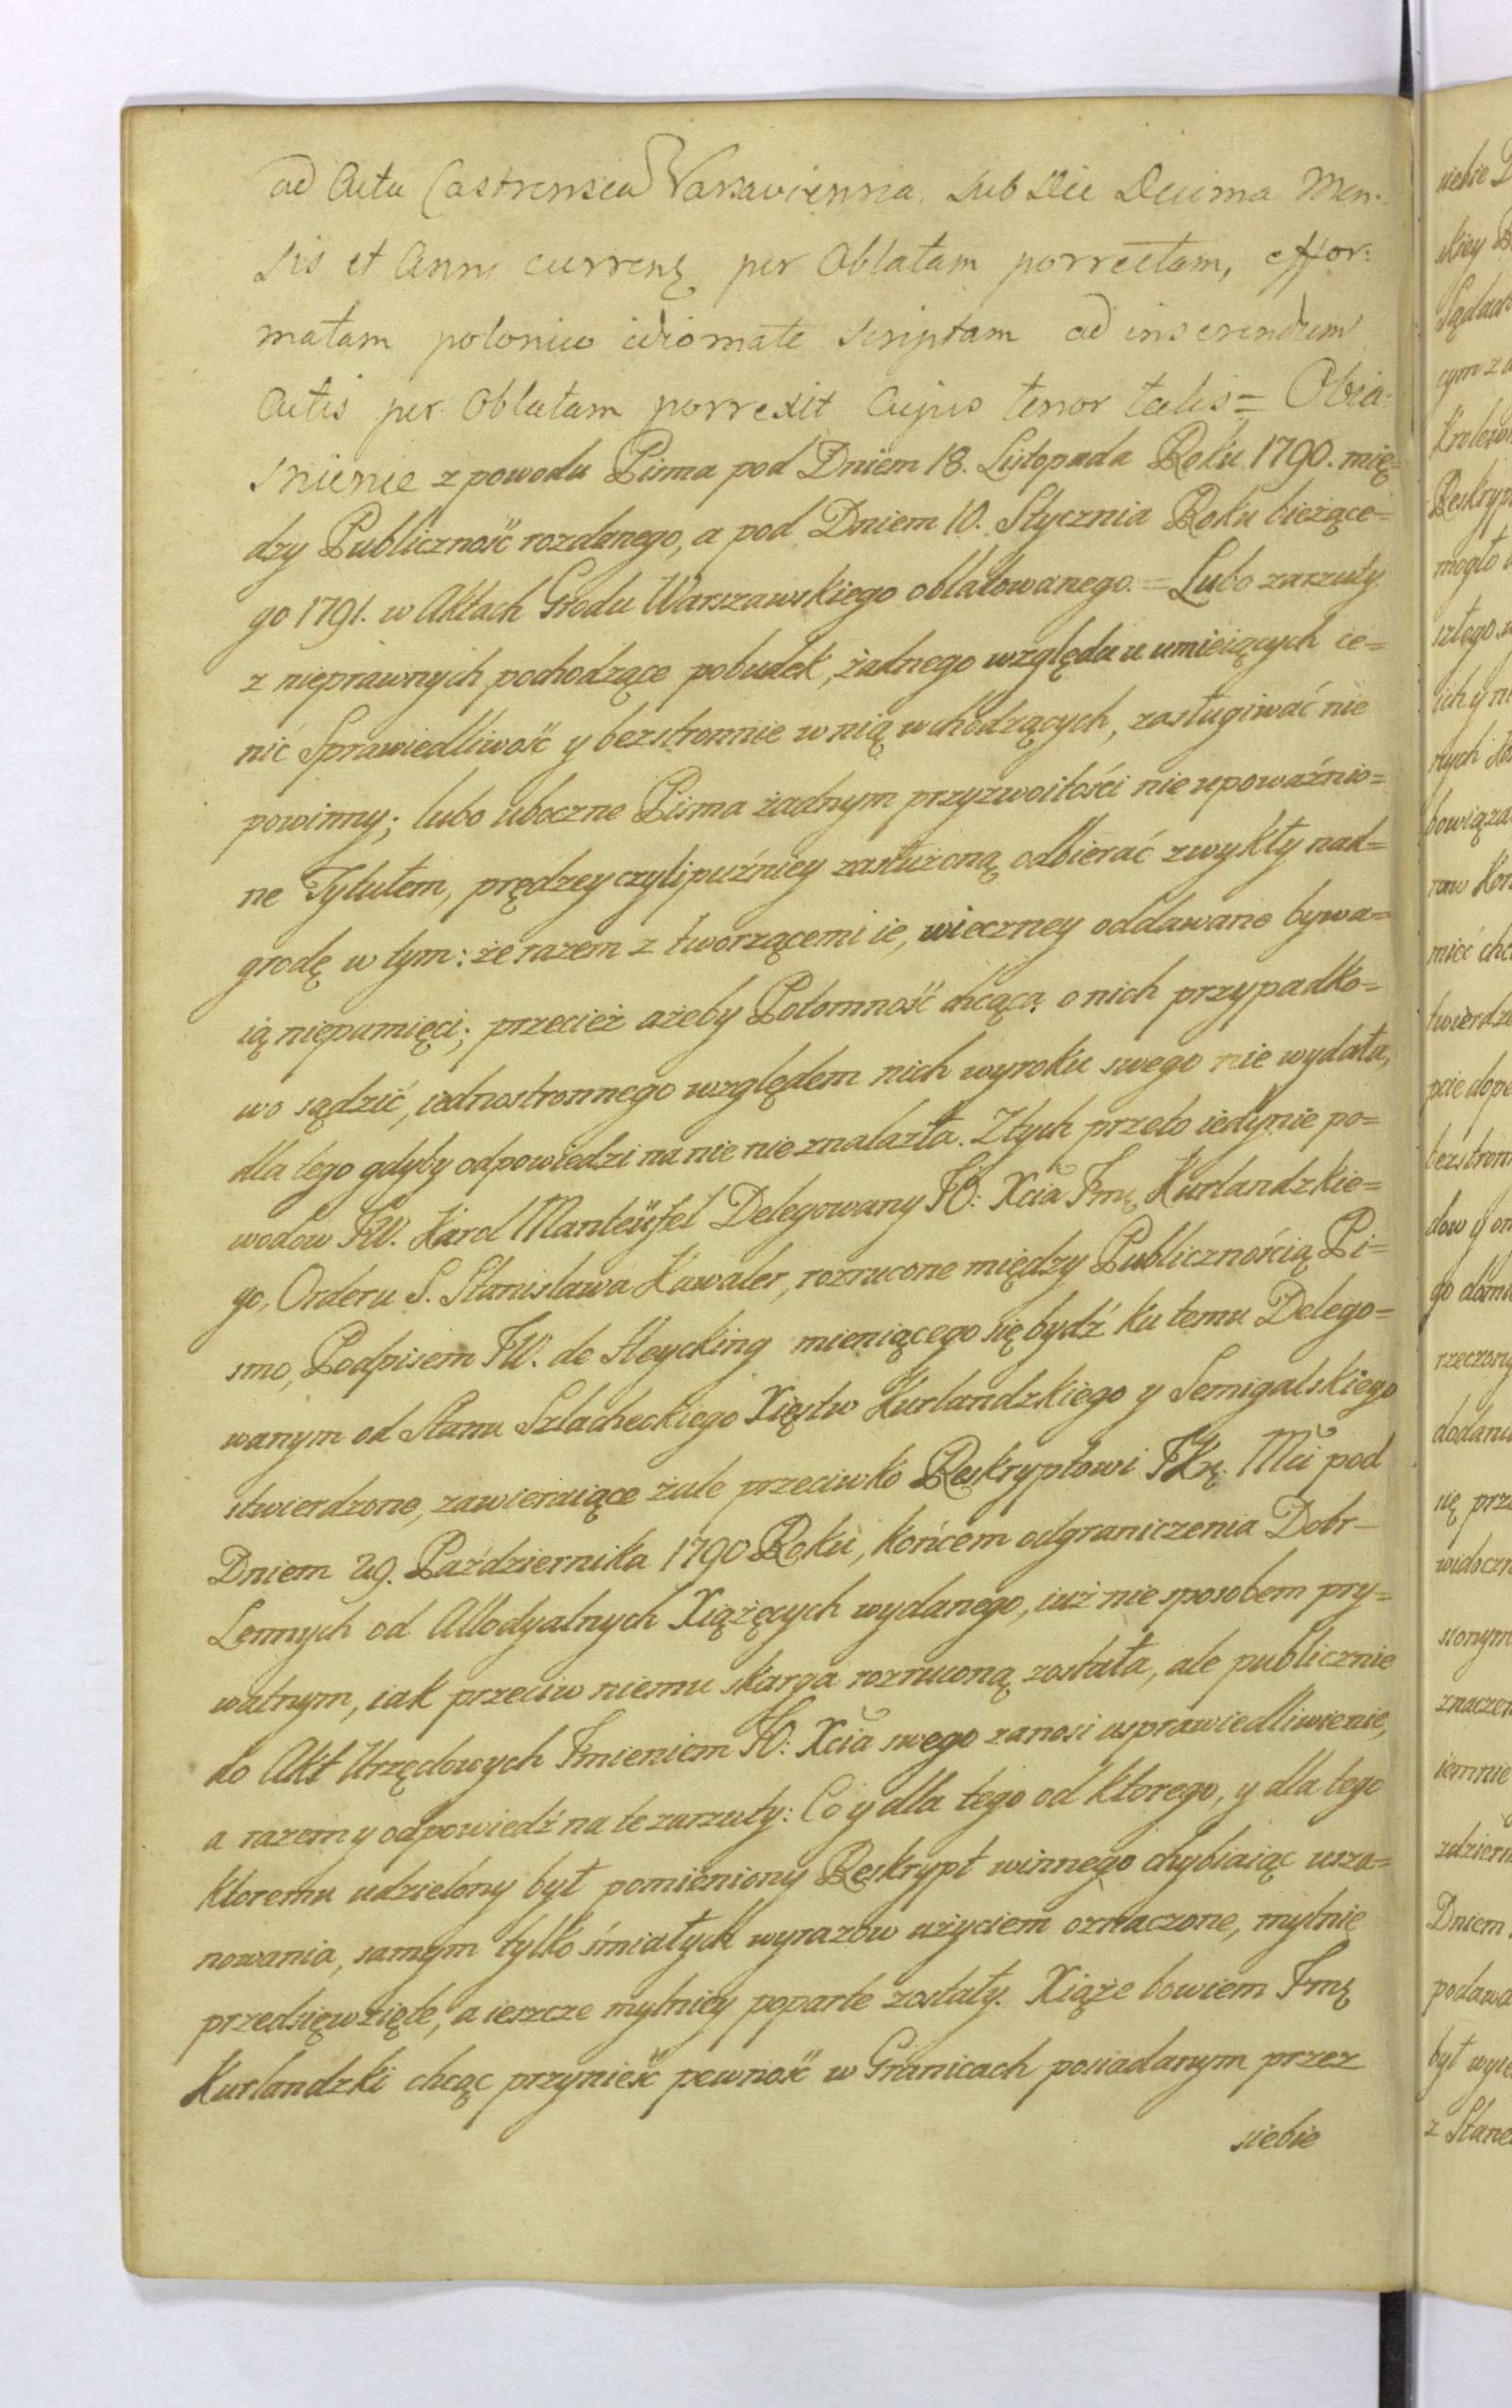 ad Acta Castrensia Varsaviensia sub Die Decima Men-
sis et Anni currenę per Oblatam porrectam, effor-
matam polonico idiomate scriptam ad inserendum
Actis per Oblatam porrexit Cujus tenor talis = Obia-
snienie z powodu Pisma pod Dniem 18. Listopada Roku 1790. mię=
dzy Publiczność rozdanego, a pod Dniem 10. Stycznia Roku bieżące=
go 1791. w Aktach Grodu Warszawskiego oblatowanego. = Lubo zarzuty
z nieprawnych pochodzące pobudek, żadnego względu u umieiących ce=
nić Sprawiedliwość y bezstronnie w nią wchodzących, zasługiwać nie
powinny; lubo uboczne Pisma żadnym przyzwoitości nie upoważnio=
ne Tytułem, prędzey czyli puźniey zasłużoną odbierać zwykły nad=
grodę w tym: że razem z tworzącemi ie, wieczney oddawane bywa=
ią niepamięci; przecież ażeby Potomność chcąca o nich przypadko=
wo sądzić, iednostronnego względem nich wyroku swego nie wydała,
dla tego gdyby odpowiedzi na nie nie znalazła. Z tych przeto iedynie po=
wodow JW. Karol Manteüfel Delegowany JO: Xcia Jmę Kurlandzkie=
go, Orderu S. Stanisława Kawaler, rozrucone między Publicznością Pi=
smo, Podpisem JW. de Heycking mieniącego się bydź ku temu Delego=
wanym od Stanu Szlacheckiego Xięstw Kurlandzkiego y Semigalskiego
stwierdzone, zawieraiące żale przeciwko Reskryptowi JKę. Mci pod
Dniem 29. Października 1790 Roku, końcem odgraniczenia Dobr
Lennych od Allodyalnych Xiążęcych wydanego, iuż nie sposobem pry=
watnym, iak przeciw niemu skarga rozruconą została, ale publicznie
do Akt Urzędowych Jmieniem JO: Xcia swego zanosi usprawiedliwienie,
a razem y odpowiedź na te zarzuty: Co y dla tego od ktorego, y dla tego
ktoremu udzielony był pomieniony Reskrypt winnego chybiaiąc usza=
nowania, samym tylko śmiałych wyrazow użyciem oznaczone, mylnie
przedsięwzięte, a ieszcze mylniey poparte zostały. Xiąże bowiem Jmę
Kurlandzki chcąc przynieść pewność w Granicach posiadanym przez
siebie